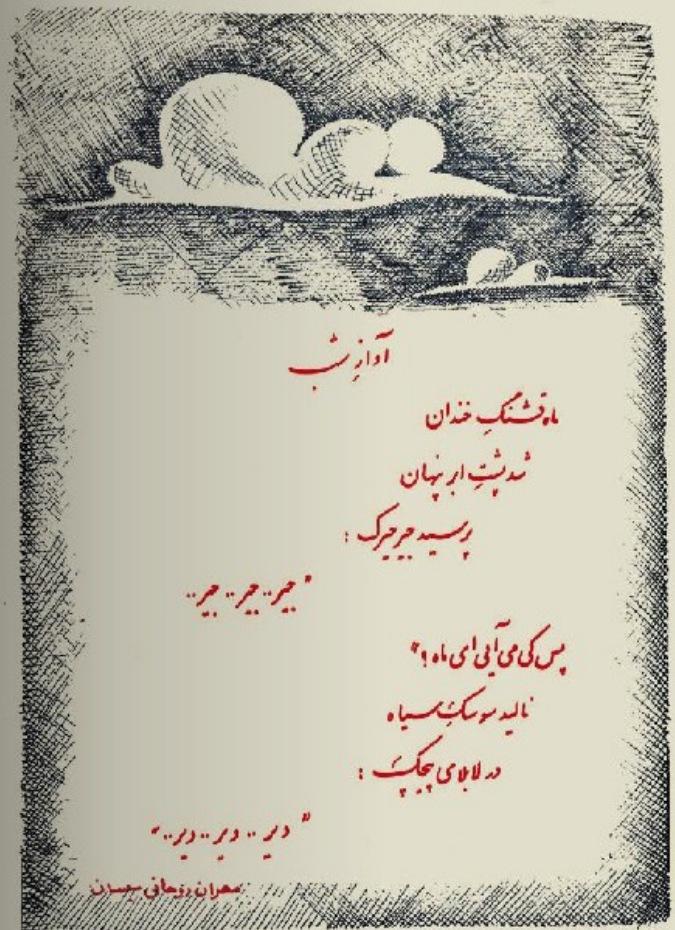 آوازِ شب
ماه قشنگِ خندان
شد پشتِ ابر پنهان
پرسید جیرجیرک :
"جیر.. جیر.. جیر..
پس کی می‌آیی ای ماه ؟"
نالید سوسکِ سیاه
در لابلای پیچک :
"دیر .. دیر .. دیر.."
مهران روحانی سیسان